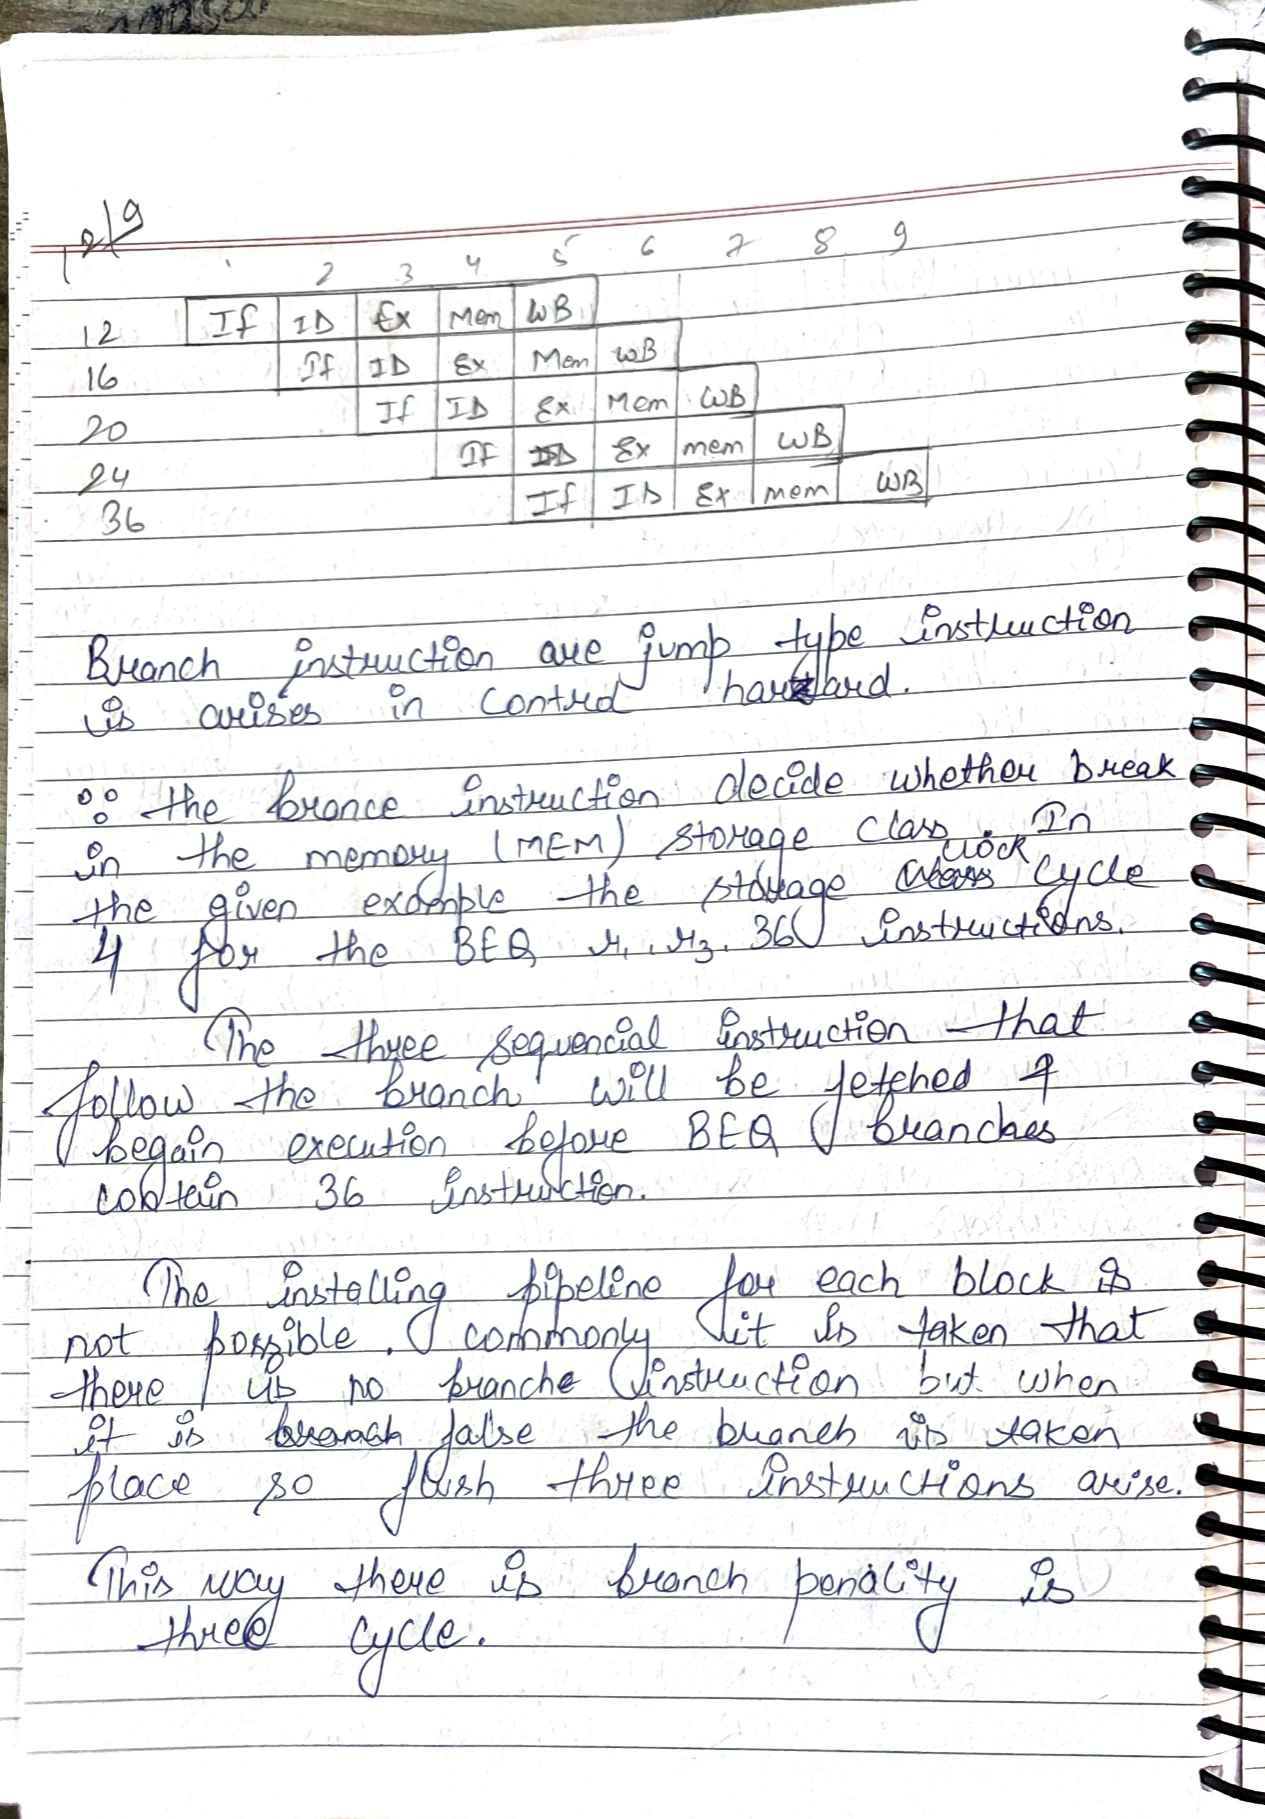 12/9
1 2 3 4 5 6 7 8 9
12 If ID Ex Mem WB
16 If ID Ex Mem WB
20 If ID Ex Mem WB
24 If ID Ex mem WB
36 If ID Ex mem WB
Branch instruction are jump type instruction
is arises in Control hazard.
the brance instruction decide whether break
in the memory (MEM) storage class. In
the given example the storage clock cycle
4 for the BEQ r1, r3. 36 instructions.
The three sequencial instruction that
follow the branch will be fetched &
begain execution before BEQ branches
contain 36 instruction.
The installing pipeline for each block is
not possible. commonly it is taken that
there is no branche instruction but when
it is false the branch is taken
place so flush three instructions arise.
This way there is branch penality is
three cycle.